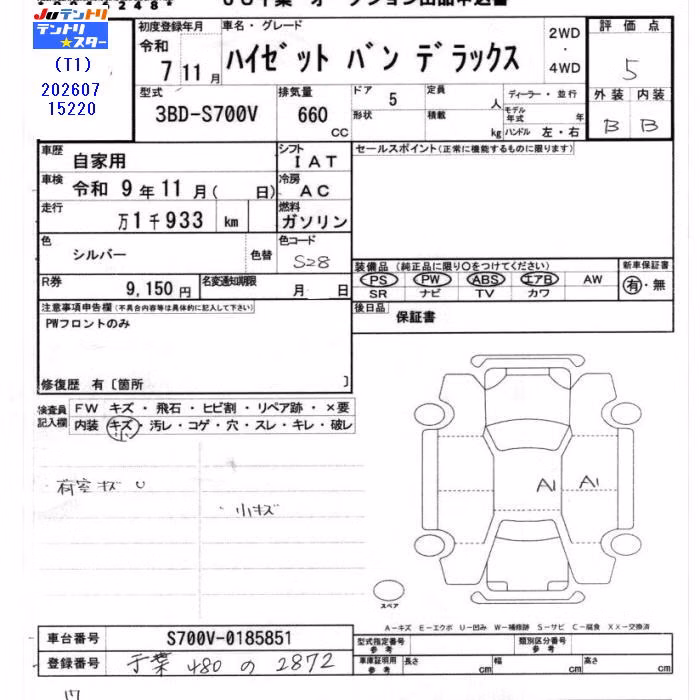 JUテントリ
テントリ
★スター
(T1)
202607
15220
初度登録年月
令和
7 11 月
車名・グレード
ハイゼット バン デラックス
2WD
・
4WD
評価点
5
型式
3BD-S700V
排気量
660
CC
ドア
5
形状
定員
人
積載
kg
ディーラー・並行
モデル年式
年
ハンドル 左・右
外装 内装
B B
車歴
自家用
シフト
IAT
セールスポイント(正常に機能するものに限ります)
車検
令和 9 年 11 月( 日)
冷房
AC
走行
万 1 千 933 km
燃料
ガソリン
色
シルバー
色替
色コード
S28
装備品 (純正品に限り○をつけてください)
PS PW ABS エアB AW
SR ナビ TV カワ
新車保証書
有・無
R券
9,150 円
名変通知期限
月 日
後日品
保証書
注意事項申告欄(不具合内容等は具体的に記入して下さい)
PWフロントのみ
修復歴 有〔箇所 〕
検査員
記入欄
FW キズ・飛石・ヒビ割・リペア跡・×要
内装 キズ・汚レ・コゲ・穴・スレ・キレ・破レ
荷室キズ U
小キズ
A1 A1
スペア
A-キズ E-エクボ U-凹み W-補修跡 S-サビ C-腐食 XX-交換済
車台番号
S700V-0185851
型式指定番号
参考
類別区分番号
参考
登録番号
千葉 480 の 2872
車庫証明用
参考
長さ
cm
幅
cm
高さ
cm